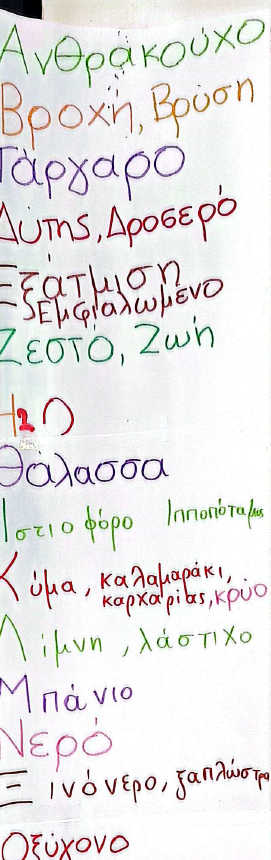 Ανθρακούχο
Βροχή, Βρύση
Γάργαρο
Δύτης, Δροσερό
Εξάτμιση
Εμφιαλωμένο
Ζεστό, Ζωή
H2O
Θάλασσα
Ιστιοφόρο Ιπποπόταμος
Κύμα, καλαμαράκι,
καρχαρίας, κρύο
Λίμνη, λάστιχο
Μπάνιο
Νερό
Ξινόνερο, ξαπλώστρα
Οξύχονο